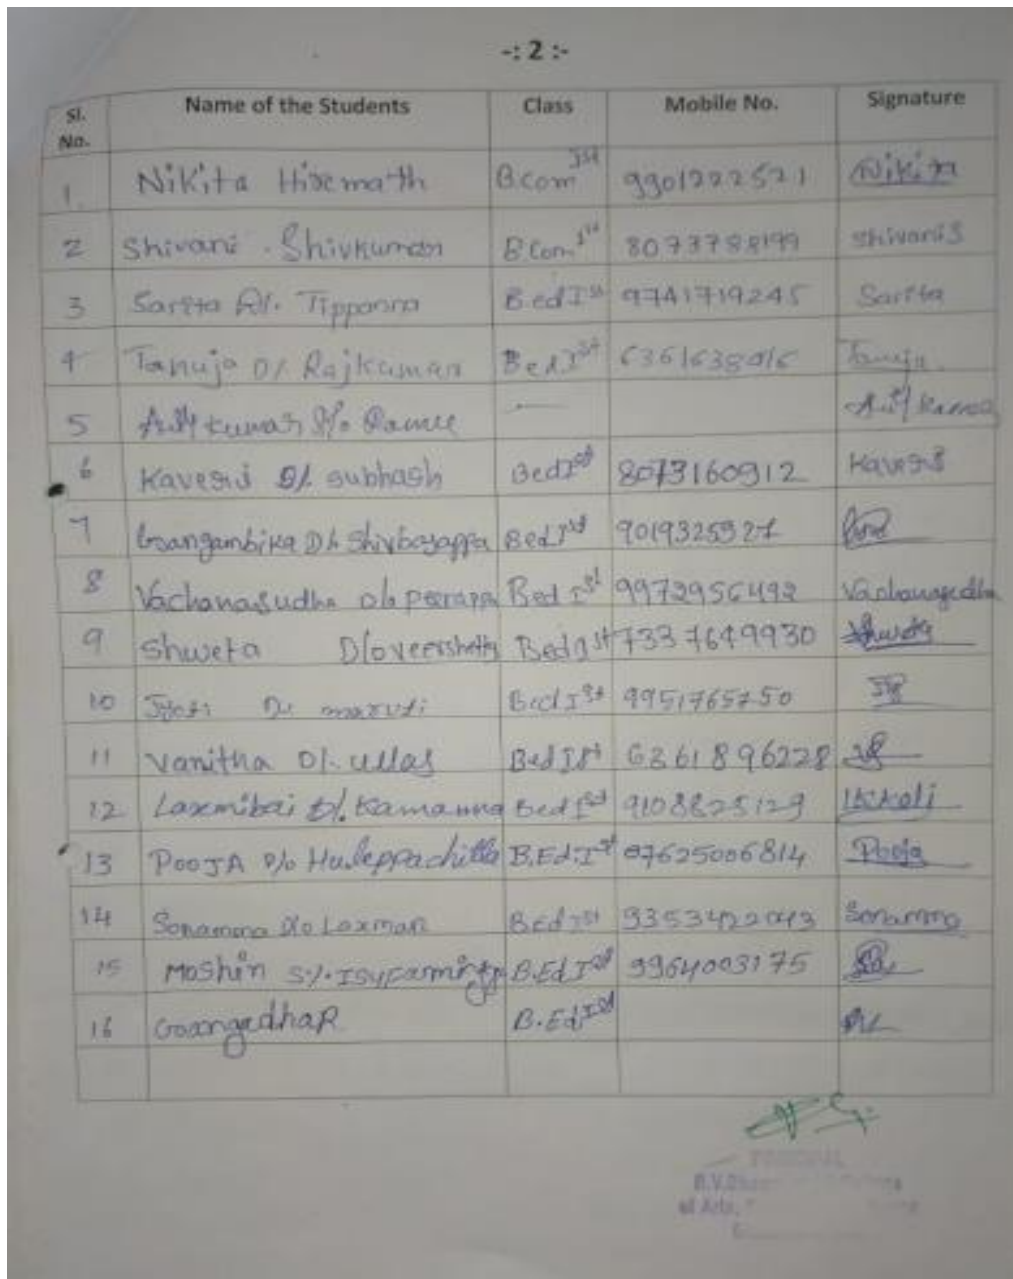 -: 2 :-
Sl. No. Name of the Students Class Mobile No. Signature
1. Nikita Hiremath B.com Ist 9901222521 Nikita
2 Shivani . Shivkumar B.Com Ist 8073788199 Shivani S
3 Sarita D/. Tippanna B.ed Ist 9741719245 Sarita
4 Tanuja D/. Rajkumar Bed Ist 6361638016 Tanuja
5 kumar S/o
6 Kaveri D/. Subhash Bed Ist 8073160912 Kaveri
7 Gangambika D/o Shivbasappa Bed Ist 9019325927
8 Vachanasudha D/o Bed Ist 9972956492
9 Shweta D/o Veershetty Bed Ist 7337649930 Shweta
10 Jyoti D/. maruti Bed Ist 9951765750
11 Vanitha D/. Ullas Bed Ist 6361896228
12 Laxmibai D/. Kamanna Bed Ist 9108825129
13 POOJA D/o B.Ed.Ist 07625006814 Pooja
14 Sonamma D/o Laxman Bed Ist 9353422043 Sonamma
15 Moshin S/. B.Ed Ist 9964003175
16 GangadhaR B.Ed Ist
PRINCIPAL
B.V.
of Arts,